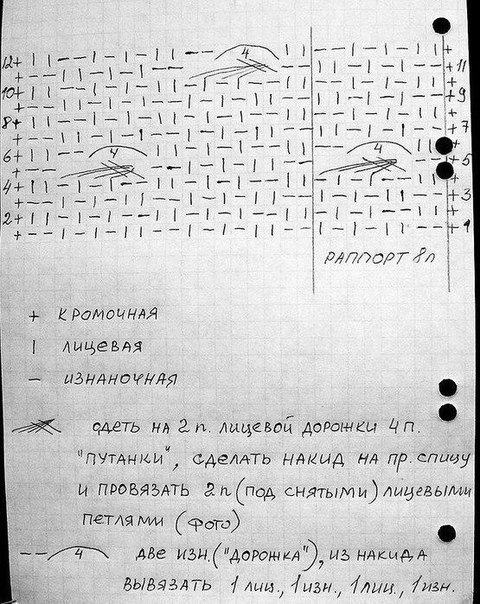 4
12+ +
+ + 11
10+ +
+ + 9
8+ +
+ + 7
4 4
6+ +
+ + 5
4+ +
+ + 3
2+ +
+ + 1
РАППОРТ 8п
+ КРОМОЧНАЯ
| ЛИЦЕВАЯ
– ИЗНАНОЧНАЯ
ОДЕТЬ НА 2 п. ЛИЦЕВОЙ ДОРОЖКИ 4 п.
"ПУТАНКИ", СДЕЛАТЬ НАКИД НА ПР. СПИЦУ
И ПРОВЯЗАТЬ 2 п (ПОД СНЯТЫМИ) ЛИЦЕВЫМИ
ПЕТЛЯМИ (ФОТО)
– – 4 ДВЕ ИЗН. ("ДОРОЖКА"), ИЗ НАКИДА
ВЫВЯЗАТЬ 1 ЛИЦ., 1 ИЗН., 1 ЛИЦ., 1 ИЗН.